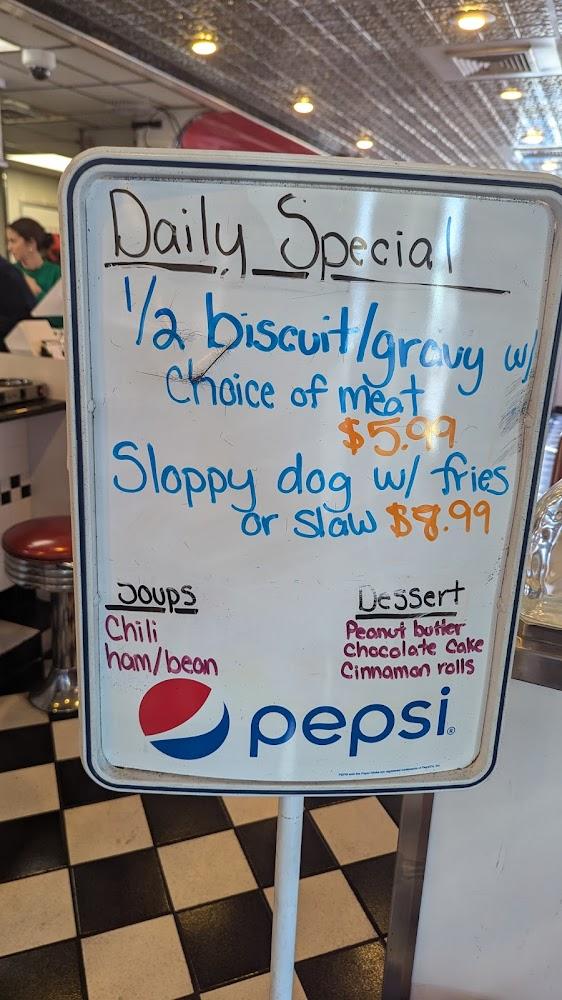 Daily Special
1/2 biscuit/gravy w/
choice of meat
$5.99
Sloppy dog w/ fries
or slaw $8.99
Soups
Chili
ham/bean
Dessert
Peanut butter
Chocolate Cake
Cinnamon rolls
pepsi